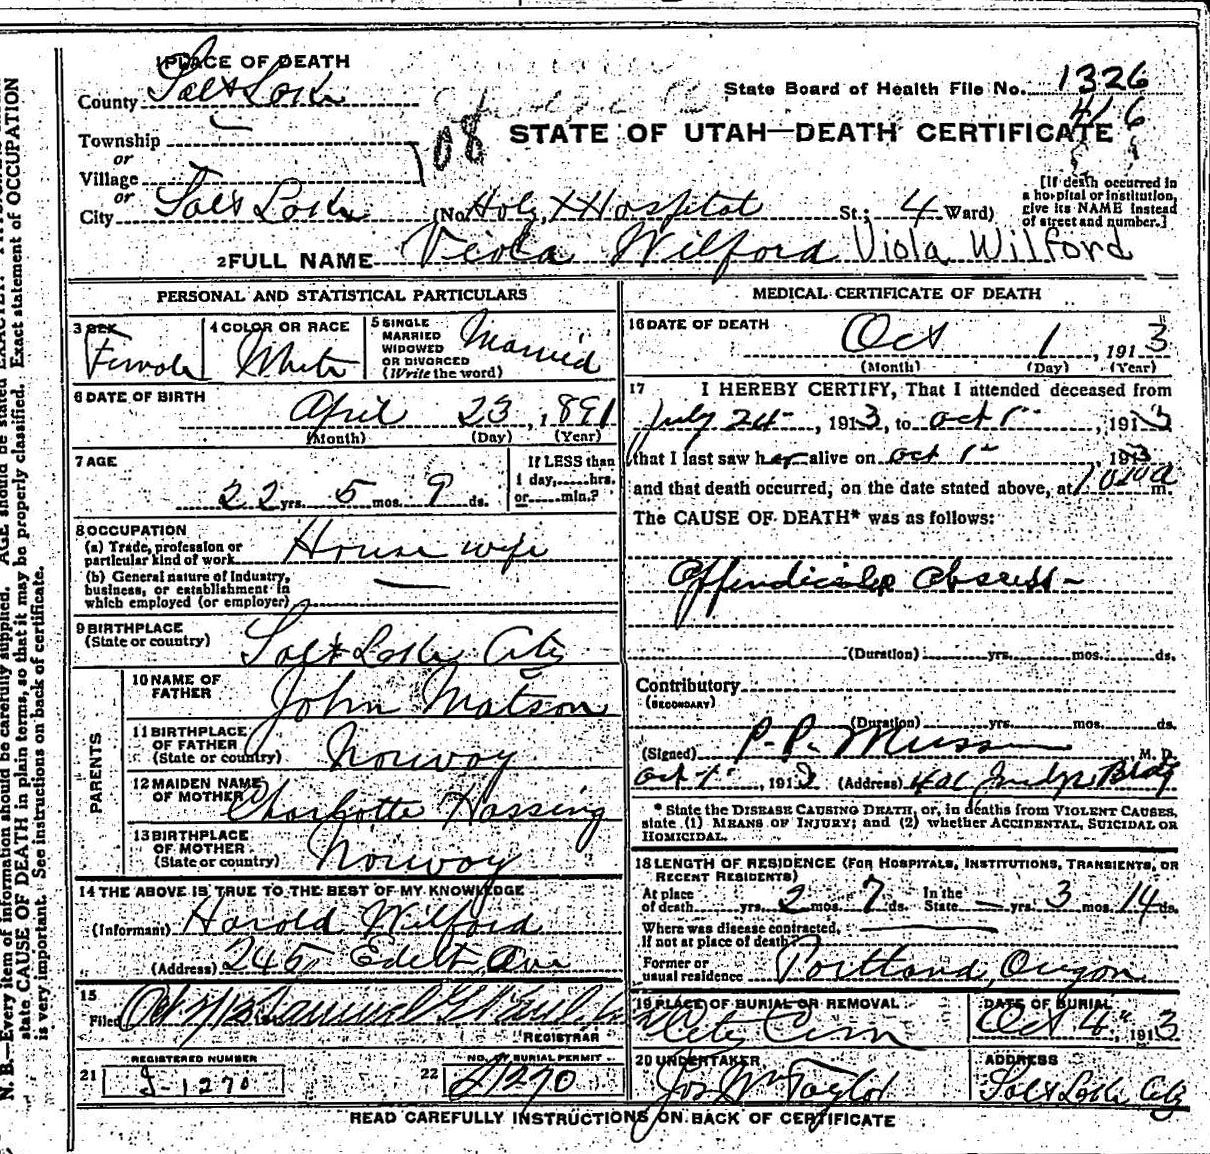 1 PLACE OF DEATH
County Salt Lake
State Board of Health File No. 1326
416
Township
or
Village
or
108
STATE OF UTAH—DEATH CERTIFICATE
City Salt Lake (No. Holy X Hospital St.; 4 Ward)
[If death occurred in
a hospital or institution,
give its NAME instead
of street and number.]
2 FULL NAME Viola Wilford Viola Wilford
PERSONAL AND STATISTICAL PARTICULARS
3 SEX
Female
4 COLOR OR RACE
White
5 SINGLE
MARRIED
WIDOWED
OR DIVORCED
(Write the word)
Married
6 DATE OF BIRTH
April 23, 1891
(Month) (Day) (Year)
7 AGE
22 yrs. 5 mos. 9 ds.
If LESS than
1 day,......hrs.
or......min.?
8 OCCUPATION
(a) Trade, profession or
particular kind of work House wife
(b) General nature of industry,
business, or establishment in
which employed (or employer) —
9 BIRTHPLACE
(State or country) Salt Lake City
PARENTS
10 NAME OF
FATHER John Matson
11 BIRTHPLACE
OF FATHER
(State or country) Norway
12 MAIDEN NAME
OF MOTHER Charlotte Hassing
13 BIRTHPLACE
OF MOTHER
(State or country) Norway
14 THE ABOVE IS TRUE TO THE BEST OF MY KNOWLEDGE
(Informant) Harold Wilford
(Address) 245 Ave
15
Filed
REGISTRAR
REGISTERED NUMBER
21 J-1270
NO. OF BURIAL PERMIT
22 J1270
MEDICAL CERTIFICATE OF DEATH
16 DATE OF DEATH
Oct 1, 1913
(Month) (Day) (Year)
17 I HEREBY CERTIFY, That I attended deceased from
July 24, 1913, to Oct 1, 1913
that I last saw her alive on Oct 1 1913
and that death occurred, on the date stated above, at m.
The CAUSE OF DEATH* was as follows:
Appendicular Abscess-
(Duration) yrs. mos. ds.
Contributory
(SECONDARY)
(Duration) yrs. mos. ds.
(Signed) P.P. M. D.
Oct 1, 1913 (Address) Judge Bldg
* State the DISEASE CAUSING DEATH, or, in deaths from VIOLENT CAUSES,
state (1) MEANS OF INJURY; and (2) whether ACCIDENTAL, SUICIDAL OR
HOMICIDAL.
18 LENGTH OF RESIDENCE (FOR HOSPITALS, INSTITUTIONS, TRANSIENTS, OR
RECENT RESIDENTS)
At place
of death yrs. 2 mos. 7 ds. In the
State — yrs. 3 mos. 14 ds.
Where was disease contracted,
If not at place of death? —
Former or
usual residence Portland, Oregon
19 PLACE OF BURIAL OR REMOVAL
City Cem
DATE OF BURIAL
Oct 4", 1913
20 UNDERTAKER
Jos Wm Taylor
ADDRESS
Salt Lake City
READ CAREFULLY INSTRUCTIONS ON BACK OF CERTIFICATE
N. B.—Every item of information should be carefully supplied. AGE should be stated EXACTLY.
state CAUSE OF DEATH in plain terms, so that it may be properly classified. Exact statement of OCCUPATION
is very important. See instructions on back of certificate.